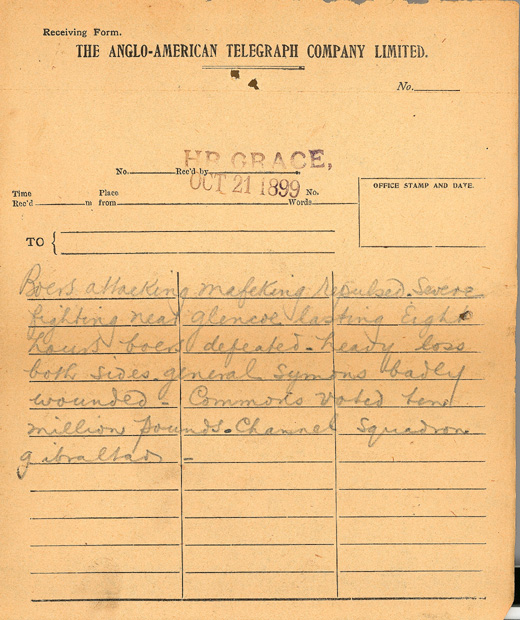 Receiving Form.
THE ANGLO-AMERICAN TELEGRAPH COMPANY LIMITED.
No.
HR GRACE,
No. Rec'd by
OCT 21 1899
Time Place No.
Rec'd m from Words
OFFICE STAMP AND DATE.
TO {
Boers attacking mafeking repulsed. Severe
fighting near glencoe lasting Eight
hours boers defeated - heavy loss
both sides. general Symons badly
wounded - Commons voted ten
million pounds - Channel Squadron
gibraltar -